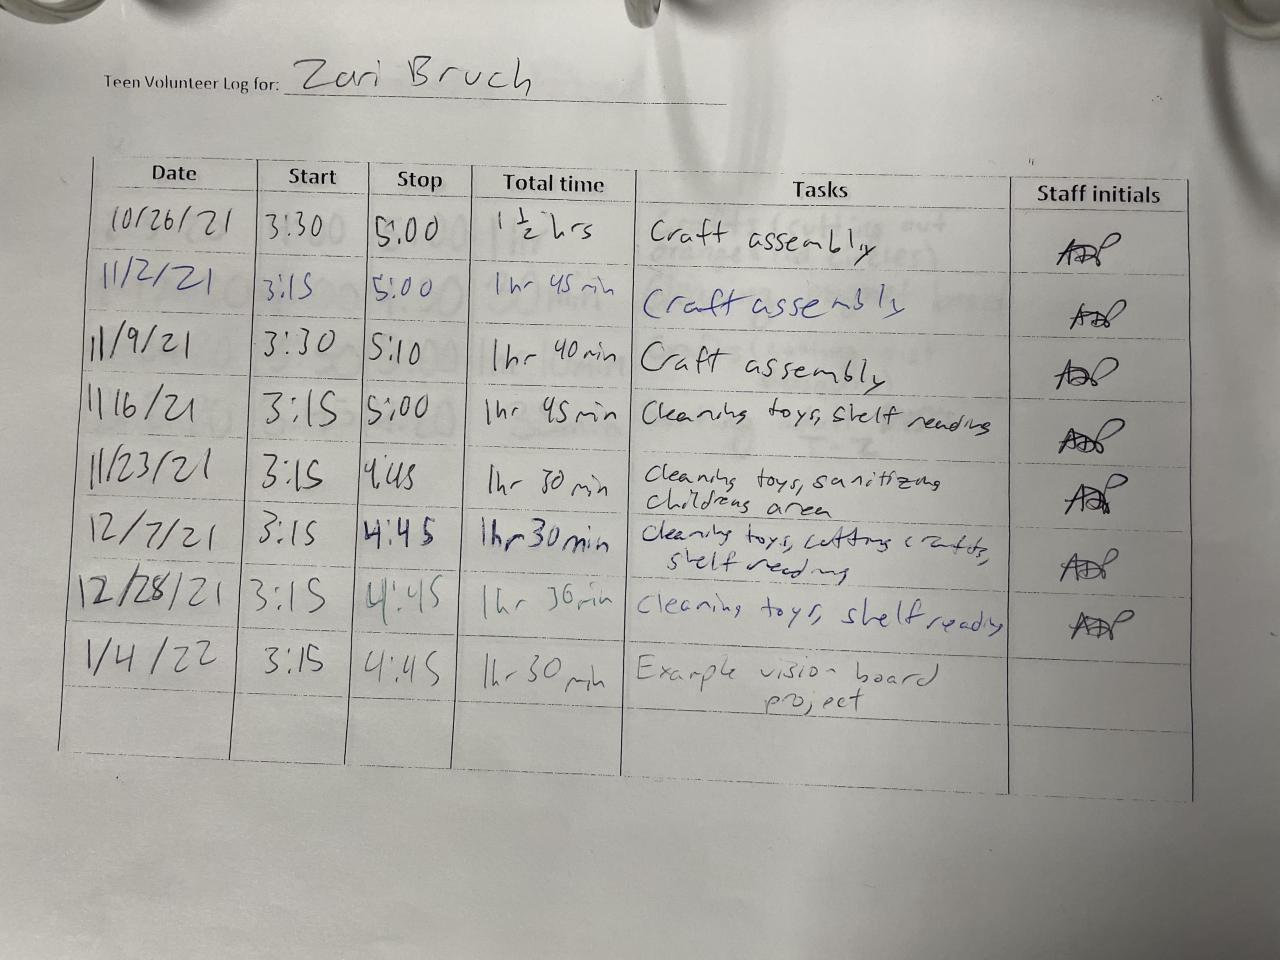 Teen Volunteer Log for: Zari Bruch
Date Start Stop Total time Tasks Staff initials
10/26/21 3:30 5:00 1 1/2 hrs Craft assembly
11/2/21 3:15 5:00 1hr 45 min Craft assembly
11/9/21 3:30 5:10 1hr 40min Craft assembly
11/16/21 3:15 5:00 1hr 45min Cleaning toys, shelf reading
11/23/21 3:15 4:45 1hr 30 min Cleaning toys, sanitizing
childrens area
12/7/21 3:15 4:45 1hr 30min Cleaning toys, cutting crafts,
shelf reading
12/28/21 3:15 4:45 1hr 30min Cleaning toys, shelf reading
1/4/22 3:15 4:45 1hr 30 min Example vision board
project